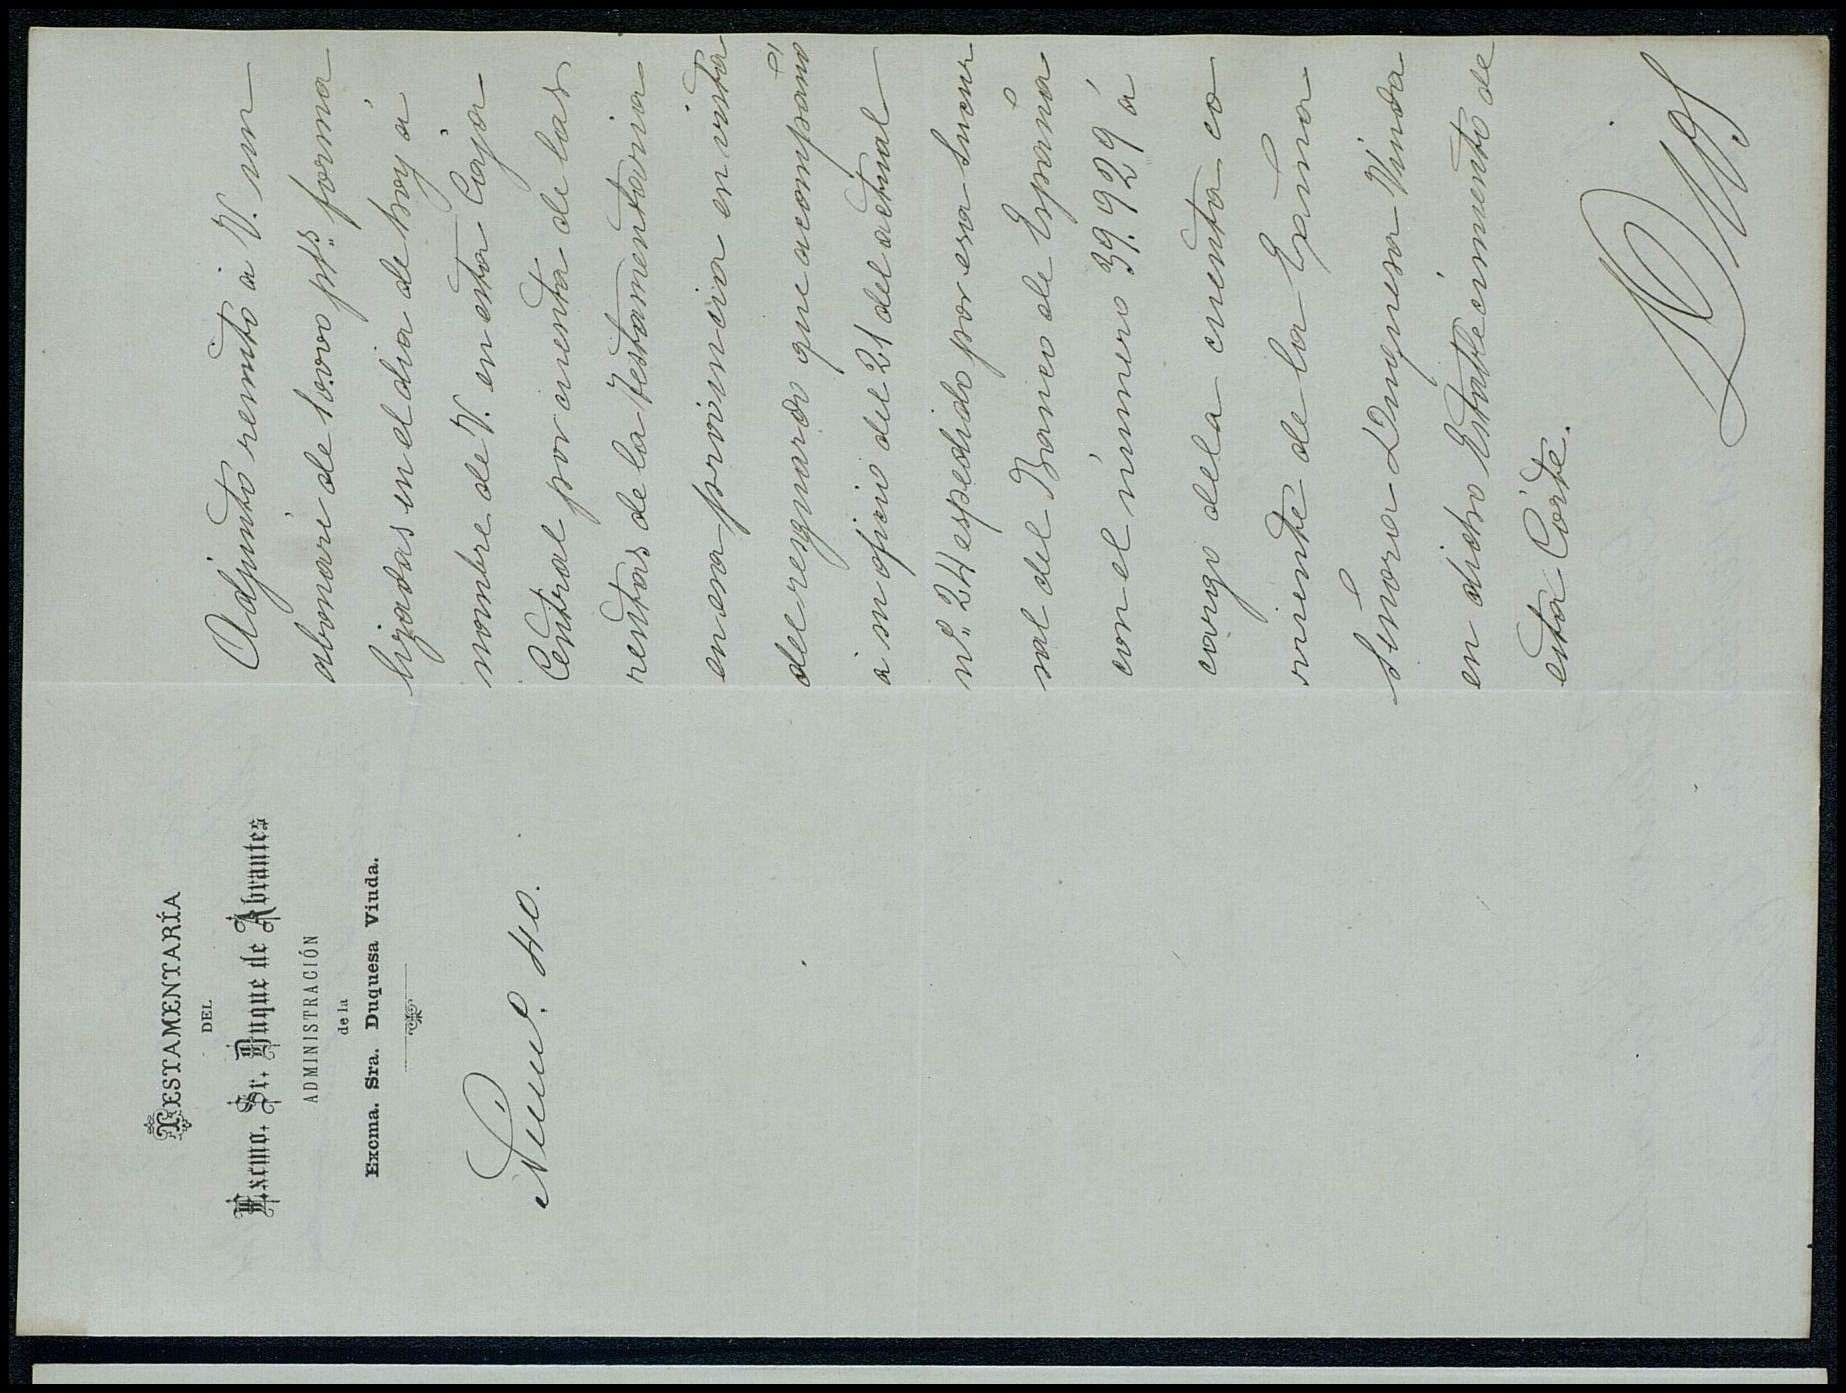 TESTAMENTARÍA
DEL
Excmo. Sr. Duque de Abrantes
ADMINISTRACIÓN
de la
Excma. Sra. Duquesa Viuda.
Núm.º 40.
Adjunto remito á V. un
abonaré de 10.000 pts. forma
lizadas en el dia de hoy á
nombre de V. en esta Caja
Central por cuenta de las
rentas de la Testamentaria
en esa provincia en vista
del resguardo que acompañó
a su oficio del 21 del actual
nº. 24 espedido por esa Sucur
sal del Banco de España
con el número 39.929 á
cargo de la cuenta co
rriente de la Exma
Señora Duquesa Viuda
en dicho Establecimiento de
esta Córte.